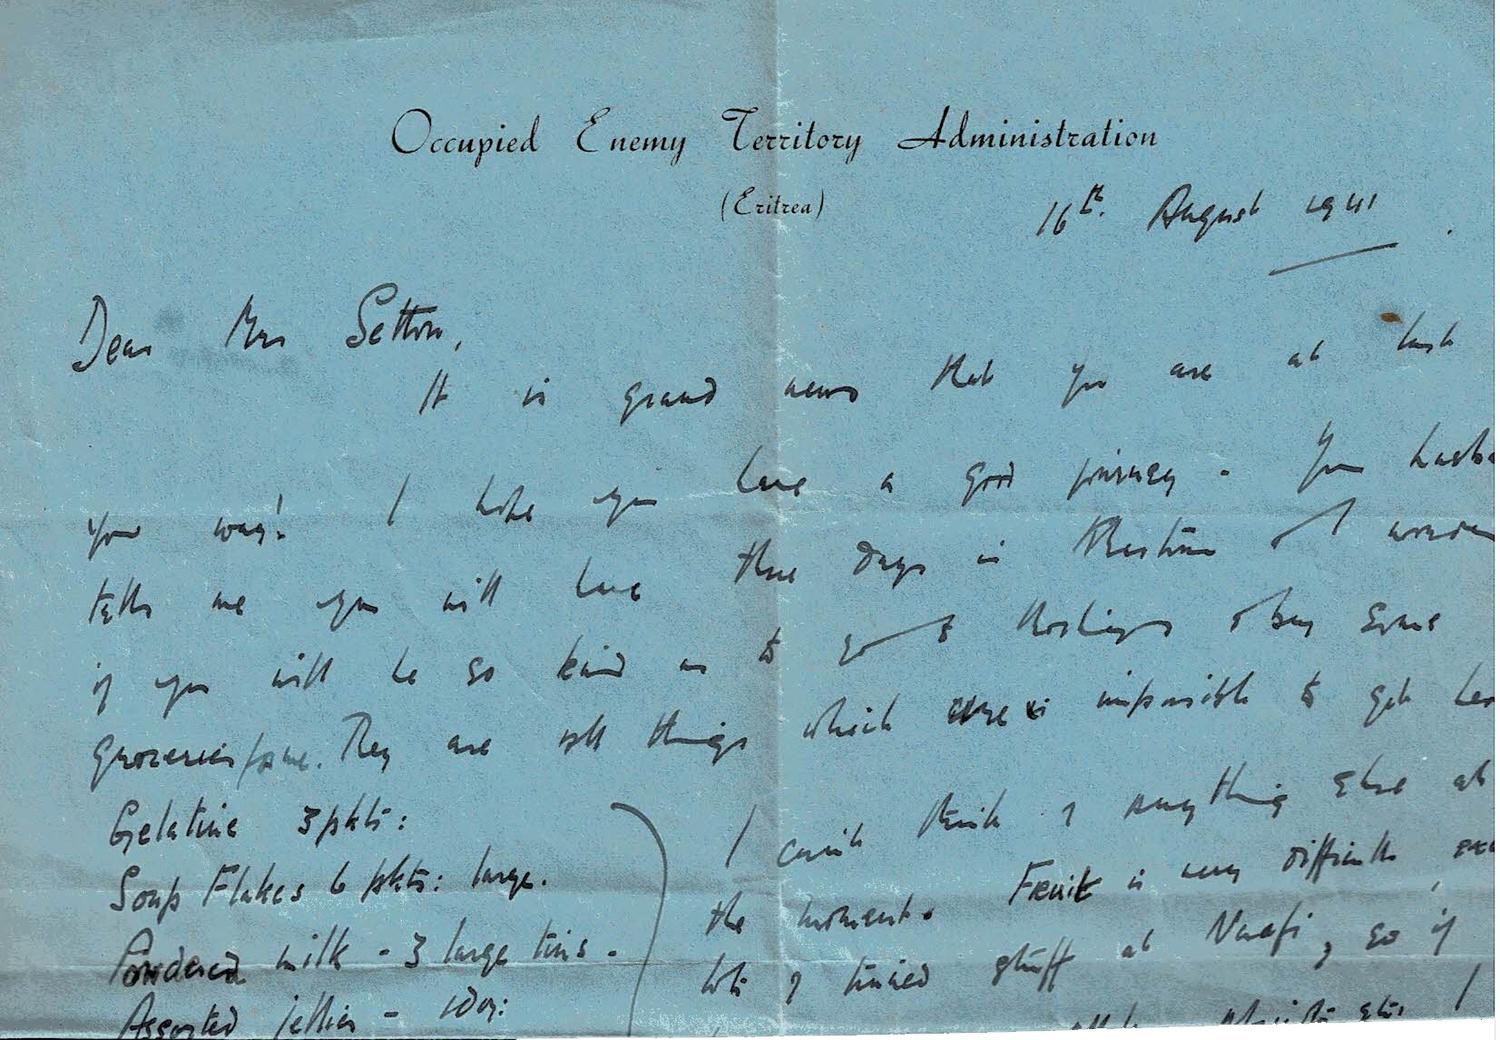 Occupied Enemy Territory Administration
(Eritrea)
16th. August 1941
Dear Mrs Setton,
It is grand news that you are at last
your way! I hope you have a good journey - Your husba
tells me you will have three days in Palestine & I wonder
if you will be so kind as to go to & buy some
groceries for me. They are all things which are impossible to get her
Gelatine 3 pkts:
Soap Flakes 6 pkts: large.
Powdered milk - 3 large tins -
Assorted jellies - 1 doz:
I can't think of anything else at
the moment. Fruit is very difficult,
lots of tinned stuff at Naafi, so if
I